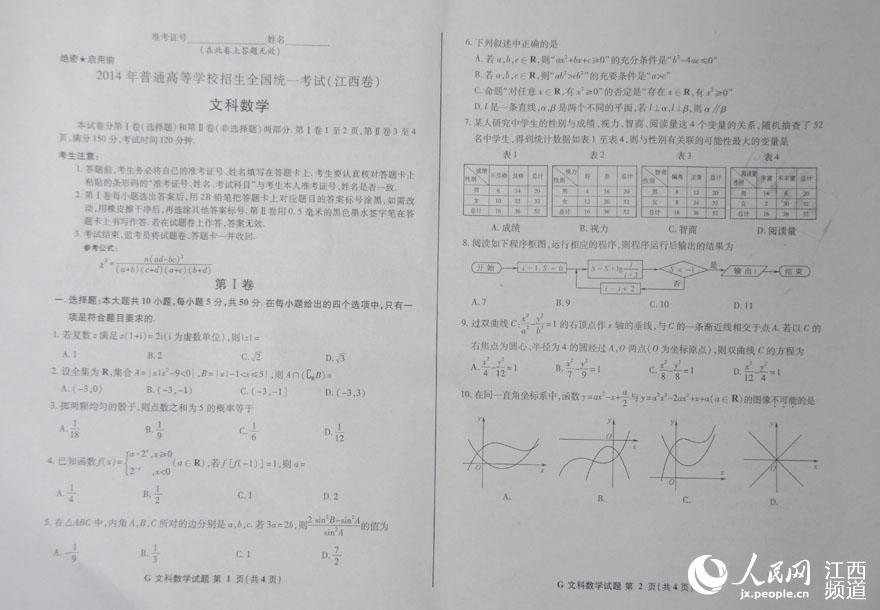 准考证号__________姓名______
(在此卷上答题无效)
绝密★启用前
2014年普通高等学校招生全国统一考试(江西卷)
文科数学
本试卷分第Ⅰ卷(选择题)和第Ⅱ卷(非选择题)两部分.第Ⅰ卷1至2页,第Ⅱ卷3至4
页,满分150分,考试时间120分钟.
考生注意:
1.答题前,考生务必将自己的准考证号、姓名填写在答题卡上.考生要认真核对答题卡上
粘贴的条形码的“准考证号、姓名、考试科目”与考生本人准考证号、姓名是否一致.
2.第Ⅰ卷每小题选出答案后,用2B铅笔把答题卡上对应题目的答案标号涂黑,如需改
动,用橡皮擦干净后,再选涂其他答案标号.第Ⅱ卷用0.5毫米的黑色墨水签字笔在答
题卡上书写作答.若在试题卷上作答,答案无效.
3.考试结束,监考员将试题卷、答题卡一并收回.
参考公式:
χ²=n(ad-bc)²/(a+b)(c+d)(a+c)(b+d)
第Ⅰ卷
一.选择题:本大题共10小题,每小题5分,共50分.在每小题给出的四个选项中,只有一
项是符合题目要求的.
1.若复数z满足z(1+i)=2i(i为虚数单位),则|z|=
A.1 B.2 C.√2 D.√3
2.设全集为R,集合A={x|x²-9<0},B={x|-1<x≤5},则A∩(∁RB)=
A.(-3,0) B.(-3,-1) C.(-3,-1] D.(-3,3)
3.掷两颗均匀的骰子,则点数之和为5的概率等于
A.1/18 B.1/9 C.1/6 D.1/12
4.已知函数f(x)={a·2ˣ,x≥0
2⁻ˣ,x<0 (a∈R),若f[f(-1)]=1,则a=
A.1/4 B.1/2 C.1 D.2
5.在△ABC中,内角A,B,C所对的边分别是a,b,c.若3a=2b,则(2sin²B-sin²A)/sin²A的值为
A.-1/9 B.1/3 C.1 D.7/2
G 文科数学试题 第1页(共4页)
6.下列叙述中正确的是
A.若a,b,c∈R,则“ax²+bx+c≥0”的充分条件是“b²-4ac≤0”
B.若a,b,c∈R,则“ab²>cb²”的充要条件是“a>c”
C.命题“对任意x∈R,有x²≥0”的否定是“存在x∈R,有x²≥0”
D.l是一条直线,α,β是两个不同的平面,若l⊥α,l⊥β,则α∥β
7.某人研究中学生的性别与成绩、视力、智商、阅读量这4个变量的关系,随机抽查了52
名中学生,得到统计数据如表1至表4,则与性别有关联的可能性最大的变量是
表1 表2 表3 表4
成绩 性别 不及格 及格 总计 视力 性别 好 差 总计 智商 性别 偏高 正常 总计 阅读量 性别 丰富 不丰富 总计
男 6 14 20 男 4 16 20 男 8 12 20 男 14 6 20
女 10 22 32 女 12 20 32 女 8 24 32 女 2 30 32
总计 16 36 52 总计 16 36 52 总计 16 36 52 总计 16 36 52
A.成绩 B.视力 C.智商 D.阅读量
8.阅读如下程序框图,运行相应的程序,则程序运行后输出的结果为
开始 i=1,S=0 S=S+lg i/(i+2) S<-1 是 输出i 结束
否
i=i+2
A.7 B.9 C.10 D.11
9.过双曲线C:x²/a²-y²/b²=1的右顶点作x轴的垂线,与C的一条渐近线相交于点A.若以C的
右焦点为圆心、半径为4的圆经过A,O两点(O为坐标原点),则双曲线C的方程为
A.x²/4-y²/12=1 B.x²/7-y²/9=1 C.x²/8-y²/8=1 D.x²/12-y²/4=1
10.在同一直角坐标系中,函数y=ax²-x+a/2与y=a²x³-2ax²+x+a(a∈R)的图像不可能的是
y y y y
O x O x O x O x
A. B. C. D.
G 文科数学试题 第2页(共4页)
人民网 江西
jx.people.cn 频道